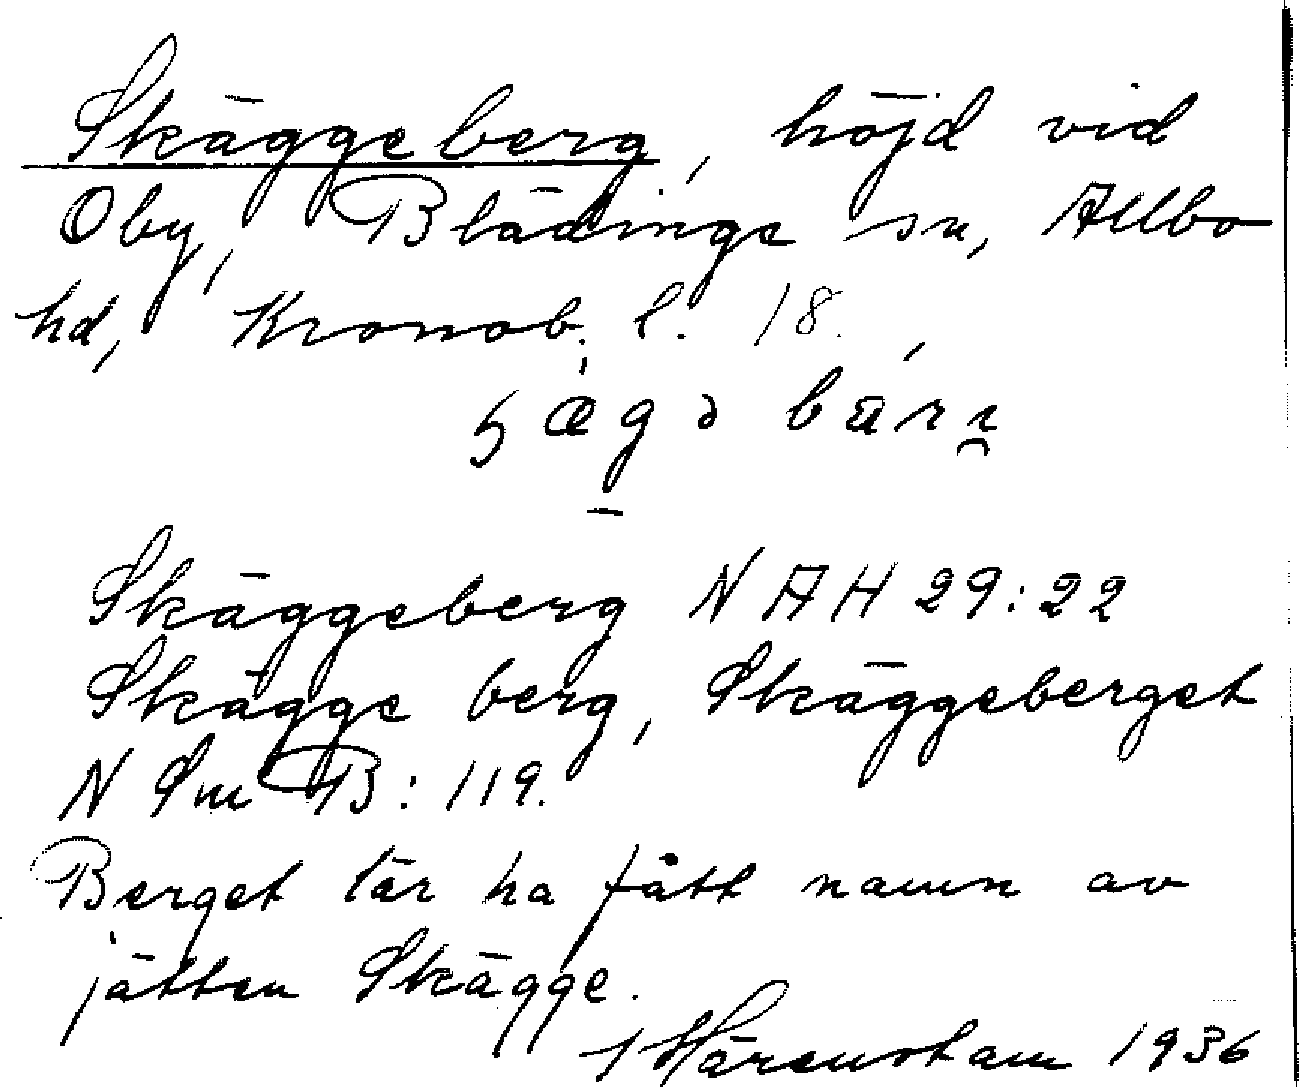 Skäggeberg, höjd vid
Oby, Blädinge sn, Allbo
hd, Kronob. l. 18.
Skäggeberg NAH 29:22
Skägge berg, Skäggeberget
N Sm B: 119.
Berget lär ha fått namn av
jätten Skägge.
Härenstam 1936